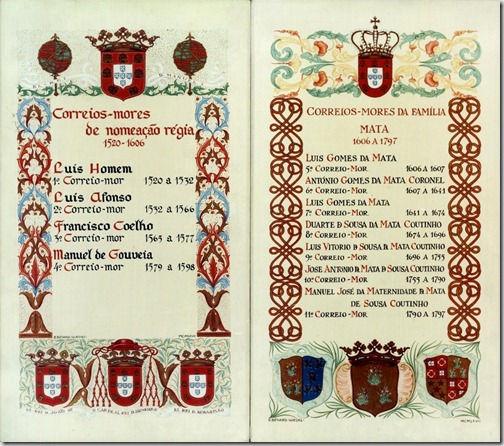 Correios-mores
de nomeação régia
1520-1606
Luís Homem
1º Correio-mor 1520 a 1532
Luís Afonso
2º Correio-mor 1532 a 1566
Francisco Coelho
3º Correio-mor 1565 a 1577
Manuel de Gouveia
4º Correio-mor 1579 a 1598
CORREIOS-MORES DA FAMÍLIA
MATA
1606 A 1797
LUIS GOMES DA MATA
5º CORREIO-MOR 1606 A 1607
ANTÓNIO GOMES DA MATA CORONEL
6º CORREIO-MOR 1607 A 1641
LUIS GOMES DA MATA
7º CORREIO-MOR 1641 A 1674
DUARTE DE SOUSA DA MATA COUTINHO
8º CORREIO-MOR 1674 A 1696
LUIS VITORIO DE SOUSA DA MATA COUTINHO
9º CORREIO-MOR 1696 A 1755
JOSE ANTONIO DA MATA DE SOUSA COUTINHO
10º CORREIO-MOR 1755 A 1790
MANUEL JOSÉ DA MATERNIDADE DA MATA
DE SOUSA COUTINHO
11º CORREIO-MOR 1790 A 1797